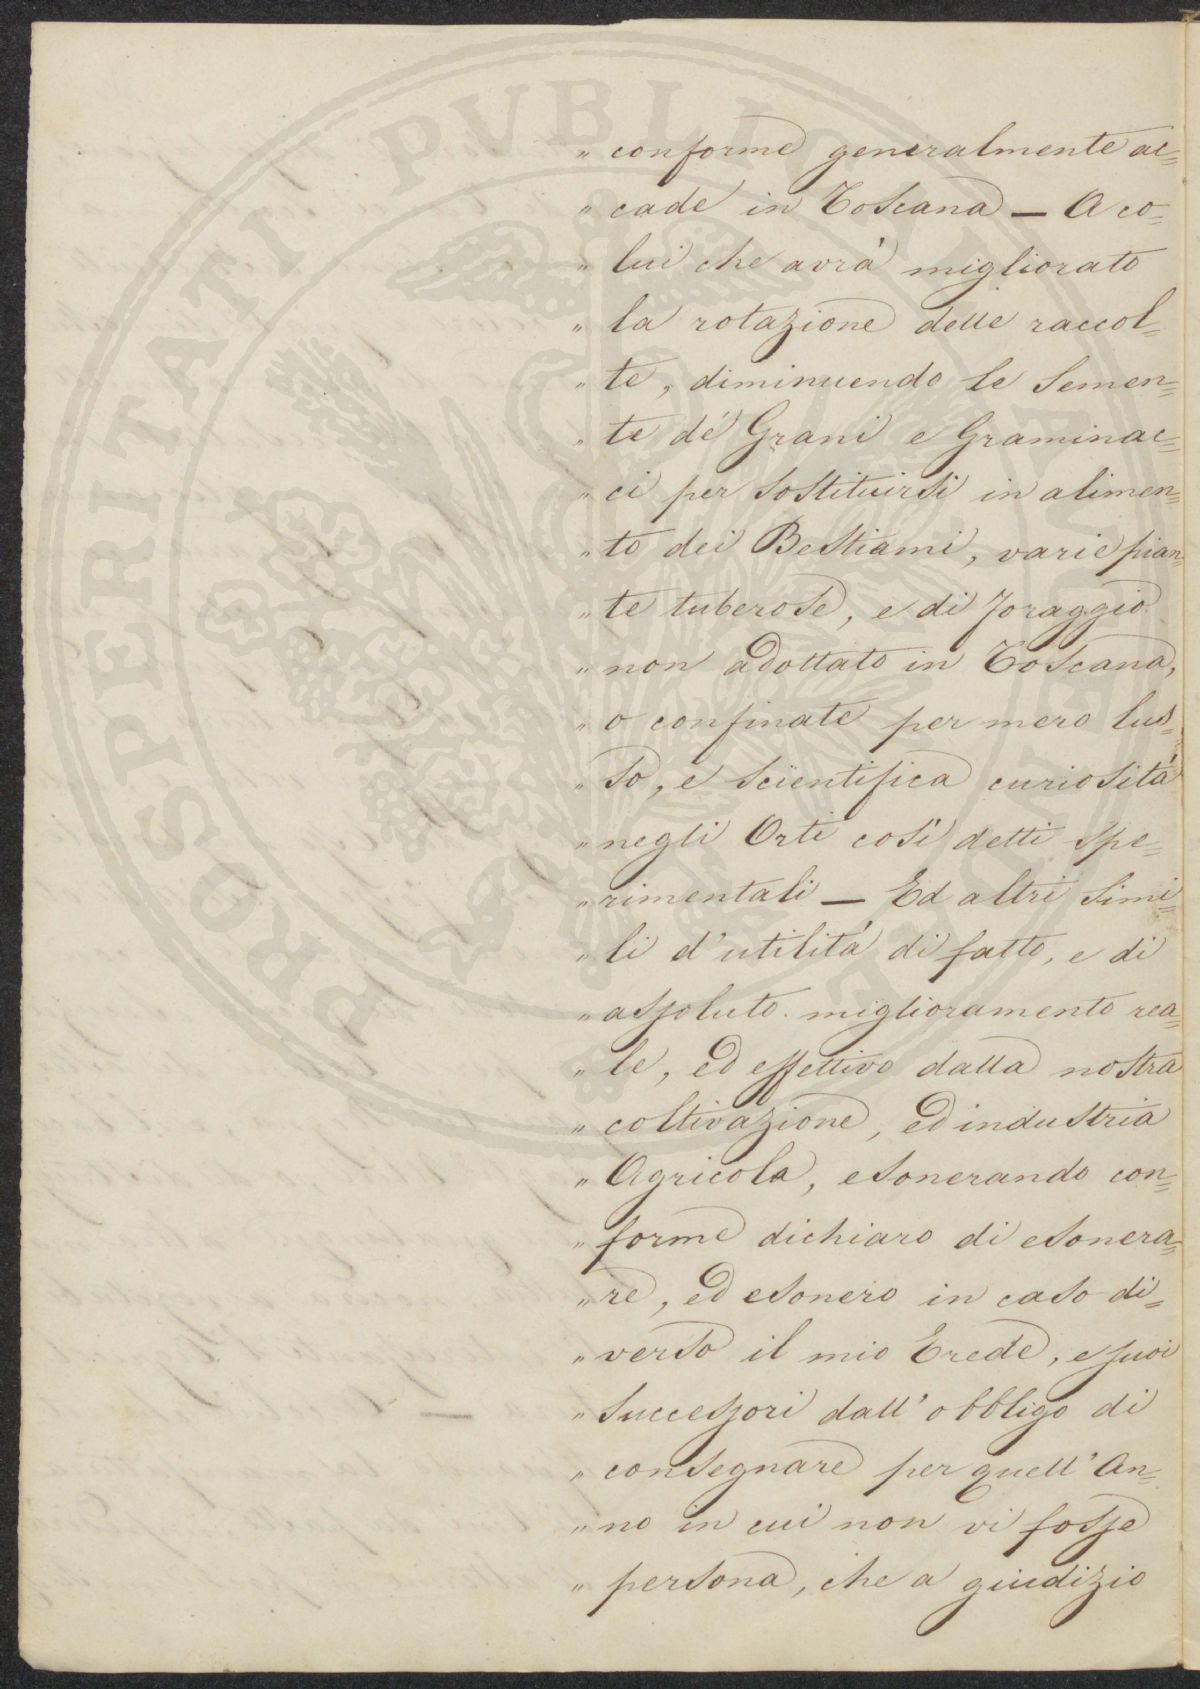 „ conforme generalmente ac=
„ cade in Toscana — A co=
„ lui che avrà migliorato
„ la rotazione delle raccol=
„ te, diminuendo le semen=
„ te de' Grani e Graminac=
„ ci per sostituirsi in alimen=
„ to dei Bestiami, varie pian=
„ te tuberose, e di foraggio
„ non adottato in Toscana,
„ o confinate per mero lus=
„ so, e scientifica curiosità
„ negli Orti così detti spe=
„ rimentali — Ed altri simi=
„ li d'utilità di fatto, e di
„ assoluto miglioramento rea=
„ le, ed effettivo dalla nostra
„ coltivazione, ed industria
„ Agricola, esonerando con=
„ forme dichiaro di esonera=
„ re, ed esonero in caso di=
„ verso il mio Erede, e suoi
„ successori dall'obbligo di
„ consegnare per quell'An=
„ no in cui non vi fosse
„ persona, che a giudizio
PROSPERITATI PVBLICAE